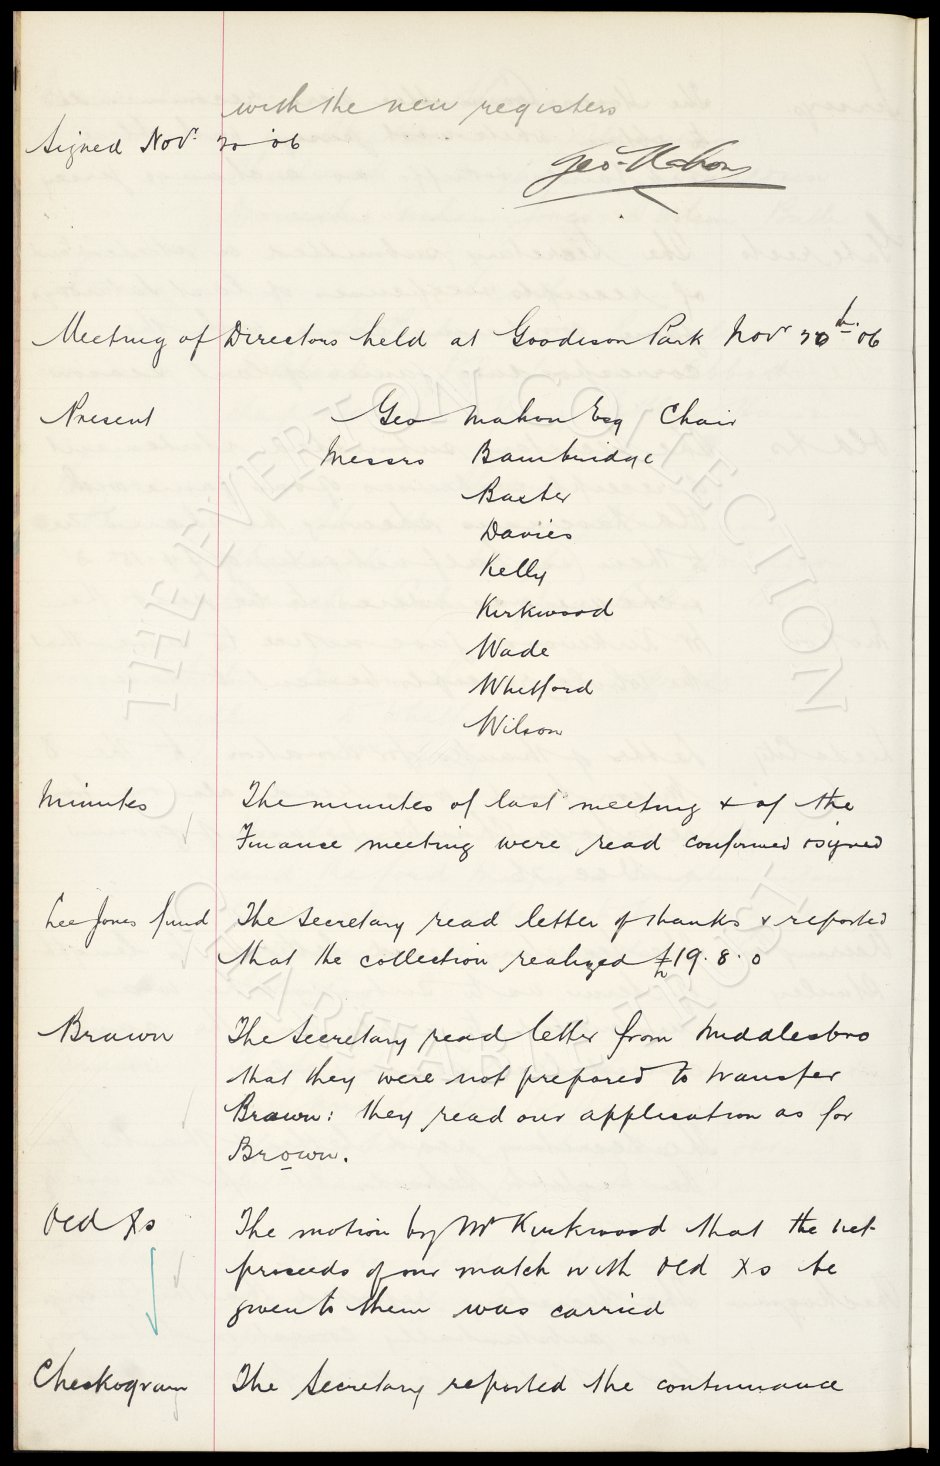 with the new registers
Signed Nov. 20 06
Geo. Mahon
Meeting of Directors held at Goodison Park Nov 20th 06
Present Geo Mahon Esq Chair
Messrs Bainbridge
Baxter
Davies
Kelly
Kirkwood
Wade
Whitford
Wilson
Minutes The minutes of last meeting & of the
Finance meeting were read confirmed & signed
Lee Jones fund The Secretary read letter of thanks & reported
that the collection realized £19.8.0
Brawn The Secretary read letter from Middlesbro
that they were not prepared to transfer
Brawn: they read our application as for
Brown.
Old Xs The motion by Mr Kirkwood that the net
proceeds of our match with Old Xs be
given to them was carried
Checkogram The Secretary reported the continuance
THE EVERTON COLLECTION
CHARITABLE TRUST